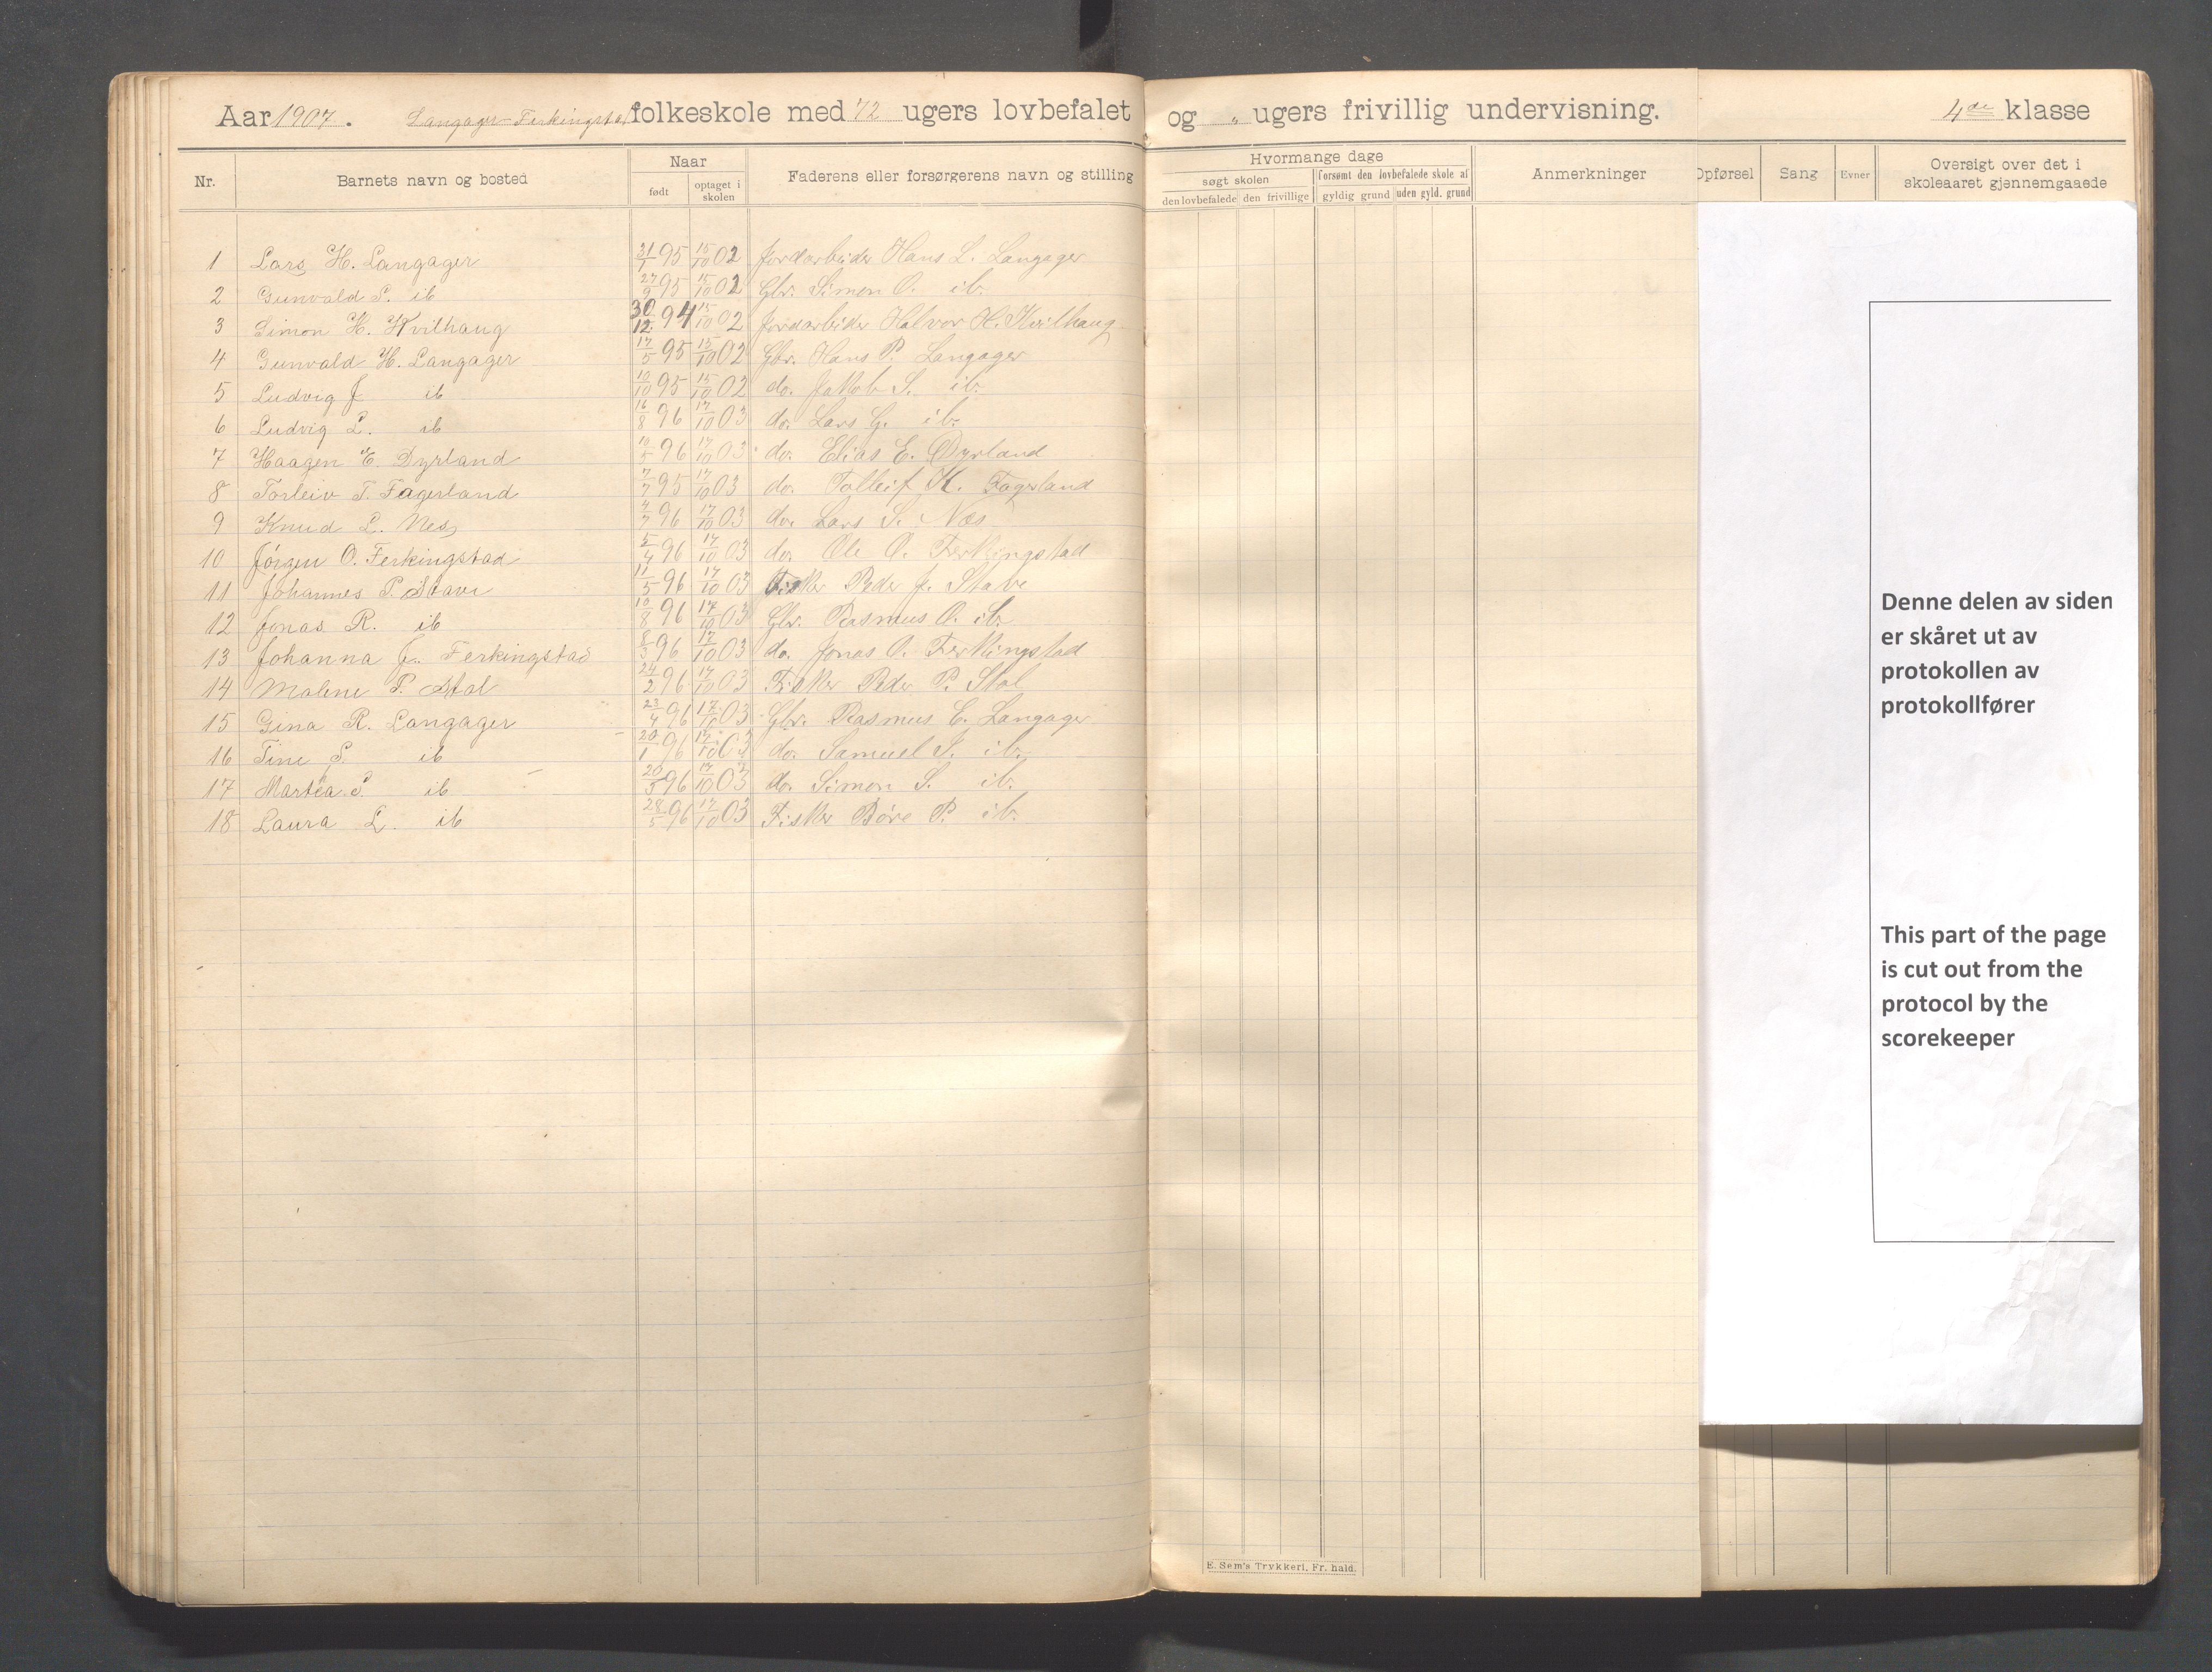 Aar 1907. Langager-Ferkingstad folkeskole med 12 ugers lovbefalet og " ugers frivillig undervisning. 4de klasse
Nr. Barnets navn og bosted Naar Faderens eller forsørgerens navn og stilling Hvormange dage Anmerkninger Opførsel Sang Evner Oversigt over det i skoleaaret gjennemgaaede
født optaget i skolen søgt skolen forsømt den lovbefalede skole af
den lovbefalede den frivillige gyldig grund uden gyld. grund
1 Lars H. Langager 31/1 95 15/10 02 Jordarbeider Hans L. Langager
2 Gunvald S. ib 27/9 95 15/10 02 Gbr. Simon O. ib.
3 Simon H. Kvilhaug 30/12 94 15/10 02 Jordarbeider Halvor H. Kvilhaug
4 Gunvald H. Langager 17/5 95 15/10 02 Gbr. Hans P. Langager
5 Ludvig J ib 10/10 95 15/10 02 do. Jakob S. ib.
6 Ludvig L. ib 16/8 96 17/10 03 do. Lars G. ib.
7 Haagen E. Dyrland 10/5 96 17/10 03 do. Elias E. Dyrland
8 Torleiv T. Fagerland 7/7 95 17/10 03 do. Tolleif K. Fagerland
9 Knud L. Nes 4/7 96 17/10 03 do. Lars S. Næs
10 Jörgen O. Ferkingstad 5/4 96 17/10 03 do. Ole O. Ferkingstad
11 Johannes P. Stave 11/5 96 17/10 03 Fisker Peder J. Stave
12 Jonas R. ib 10/8 96 17/10 03 Gbr. Rasmus O. ib.
13 Johanna J. Ferkingstad 8/3 96 17/10 03 do. Jonas O. Ferkingstad
14 Malene P. Stol 24/2 96 17/10 03 Fisker Peder P. Stol
15 Gina R. Langager 23/4 96 17/10 03 Gbr. Rasmus E. Langager
16 Tine S. ib 20/1 96 17/10 03 do. Samuel J. ib.
17 Martea S. ib 20/5 96 17/10 03 do. Simon S. ib.
18 Laura L. ib 28/5 96 17/10 03 Fisker Böre P. ib.
Denne delen av siden
er skåret ut av
protokollen av
protokollfører
This part of the page
is cut out from the
protocol by the
scorekeeper
E. Sem's Trykkeri, Fr. hald.